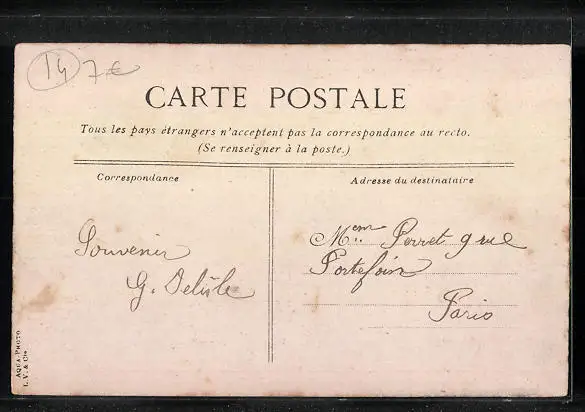 14 7€
CARTE POSTALE
Tous les pays étrangers n'acceptent pas la correspondance au recto.
(Se renseigner à la poste.)
Correspondance
Souvenir
G. Delisle
Adresse du destinataire
Mem Perret 9 rue
Portefoin
Paris
AQUA-PHOTO
L. V. & Cie